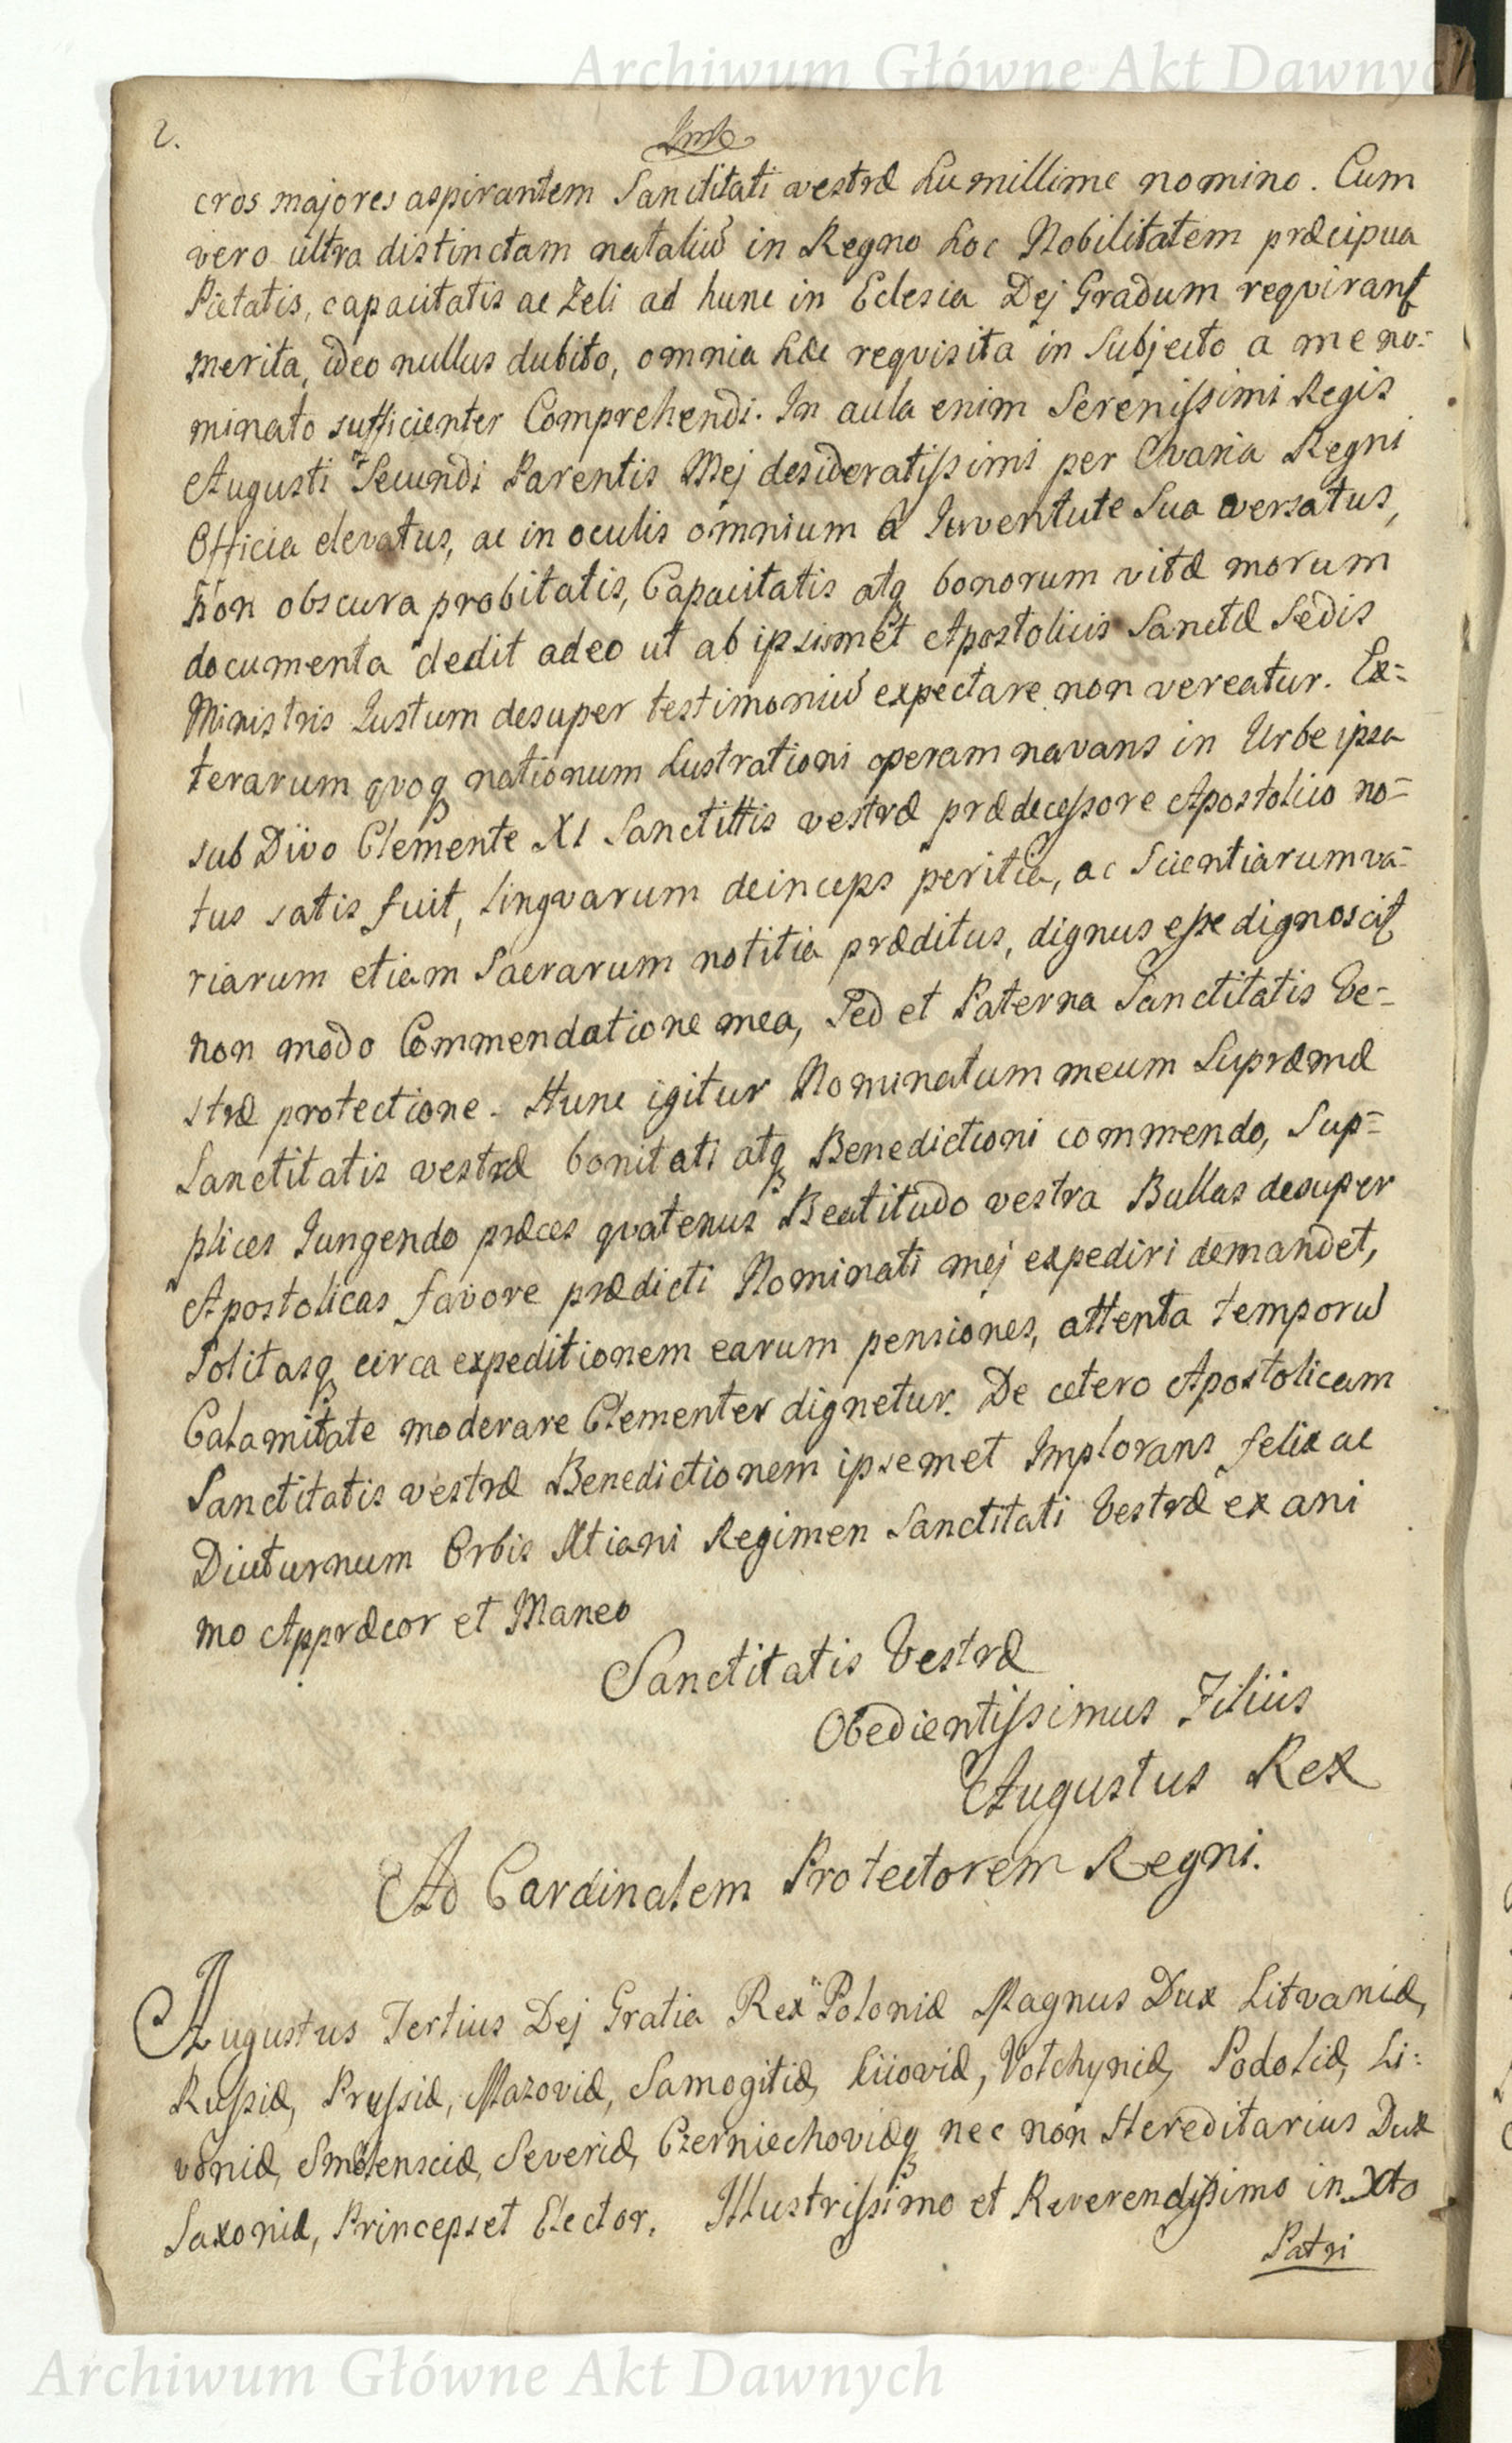 Archiwum Główne Akt Dawnych
2.
cros majores aspirantem Sanctitati vestræ humillime nomino. Cum
vero ultra distinctam nataliū in Regno hoc Nobilitatem præcipua
Pietatis, capacitatis ac Zeli ad hunc in Eclesia Dej Gradum reqvirant
merita, ideo nullus dubito, omnia hæc reqvisita in Subjecto a me no=
minato sufficienter Comprehendi. In aula enim Serenissimi Regis
Augusti Secundi Parentis Mej desideratissimi per Varia Regni
Officia elevatus, ac in oculis omnium a Iuventute Sua versatus,
Non obscura probitatis, Capacitatis atq bonorum vitæ morum
documenta dedit adeo ut ab ipsismet Apostolicis Sanctæ Sedis
Ministris Iustum desuper testimoniū expectare non vereatur. Ex=
terarum qvoq nationum Lustrationi operam navans in Urbe ipsa
sub Divo Clemente XI Sanctittis vestræ prædecessore Apostolico no=
tus satis fuit, Lingvarum deinceps peritia, ac Scientiarum va=
riarum etiam Sacrarum notitia præditus, dignus esse dignoscit
non modo Commendatione mea, Sed et Paterna Sanctitatis Ve=
stræ protectione. Hunc igitur Nominatum meum Supræmæ
Sanctitatis vestræ bonitati atq Benedictioni commendo, Sup=
plices Iungendo præces qvatenus Beatitudo vestra Bullas desuper
Apostolicas favore prædicti Nominati mej expediri demandet,
Solitasq circa expeditionem earum pensiones, attenta temporū
Calamitate moderare Clementer dignetur. De cetero Apostolicam
Sanctitatis vestræ Benedictionem ipsemet Implorans felix ac
Diuturnum Orbis Xtiani Regimen Sanctitati Vestræ ex ani
mo Appræcor et Maneo
Sanctitatis Vestræ
Obedientissimus Filius
Augustus Rex
Ad Cardinalem Protectorem Regni.
Augustus Tertius Dej Gratia Rex Poloniæ Magnus Dux Litvaniæ,
Russiæ, Prussiæ, Mazoviæ, Samogitiæ, Kiioviæ, Volchyniæ, Podoliæ, Li=
voniæ, Smolensciæ, Severiæ, Czerniechoviæq nec non Hereditarius Dux
Saxoniæ, Princeps et Elector. Illustrissimo et Reverendissimo in Xto
Patri
Archiwum Główne Akt Dawnych